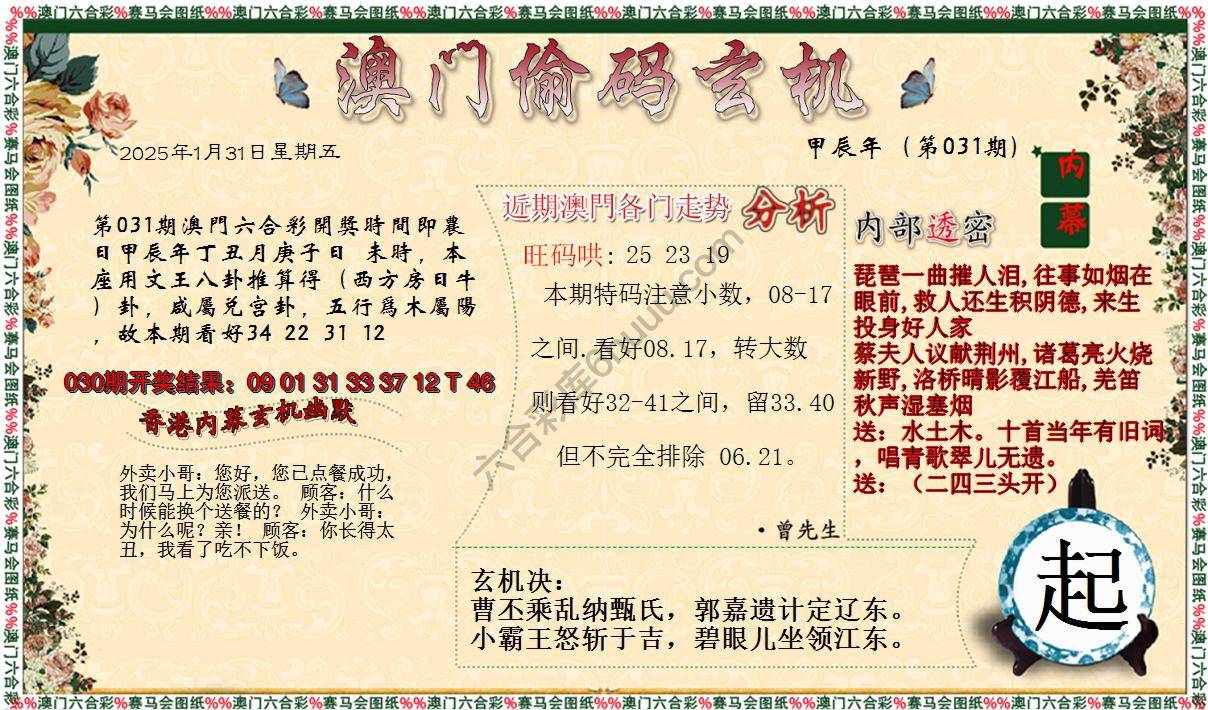 %%澳门六合彩%赛马会图纸%%澳门六合彩%赛马会图纸%%澳门六合彩%赛马会图纸%%澳门六合彩%赛马会图纸%%澳门六合彩%赛马会图纸%%澳门六合彩%赛马会图纸%%
澳门偷码玄机
2025年1月31日星期五
甲辰年（第031期）
内
幕
第031期澳門六合彩開獎時間即農
日甲辰年丁丑月庚子日 未時，本
座用文王八卦推算得（西方房日牛
）卦，咸屬兑宫卦，五行爲木屬陽
，故本期看好34 22 31 12
030期开奖结果：09 01 31 33 37 12 T 46
香港内幕玄机幽默
外卖小哥：您好，您已点餐成功，
我们马上为您派送。 顾客：什么
时候能换个送餐的？ 外卖小哥：
为什么呢？亲！ 顾客：你长得太
丑，我看了吃不下饭。
近期澳門各门走势 分析
旺码哄：25 23 19
本期特码注意小数，08-17
之间.看好08.17，转大数
则看好32-41之间，留33.40
但不完全排除 06.21。
·曾先生
内部透密
琵琶一曲摧人泪,往事如烟在
眼前,救人还生积阴德,来生
投身好人家
蔡夫人议献荆州,诸葛亮火烧
新野,洛桥晴影覆江船,羌笛
秋声湿塞烟
送：水土木。十首当年有旧词
，唱青歌翠儿无遗。
送：（二四三头开）
玄机决：
曹丕乘乱纳甄氏，郭嘉遗计定辽东。
小霸王怒斩于吉，碧眼儿坐领江东。
起
%%澳门六合彩%赛马会图纸%%澳门六合彩%赛马会图纸%%澳门六合彩%赛马会图纸%%澳门六合彩%赛马会图纸%%澳门六合彩%赛马会图纸%%澳门六合彩%赛马会图纸%%